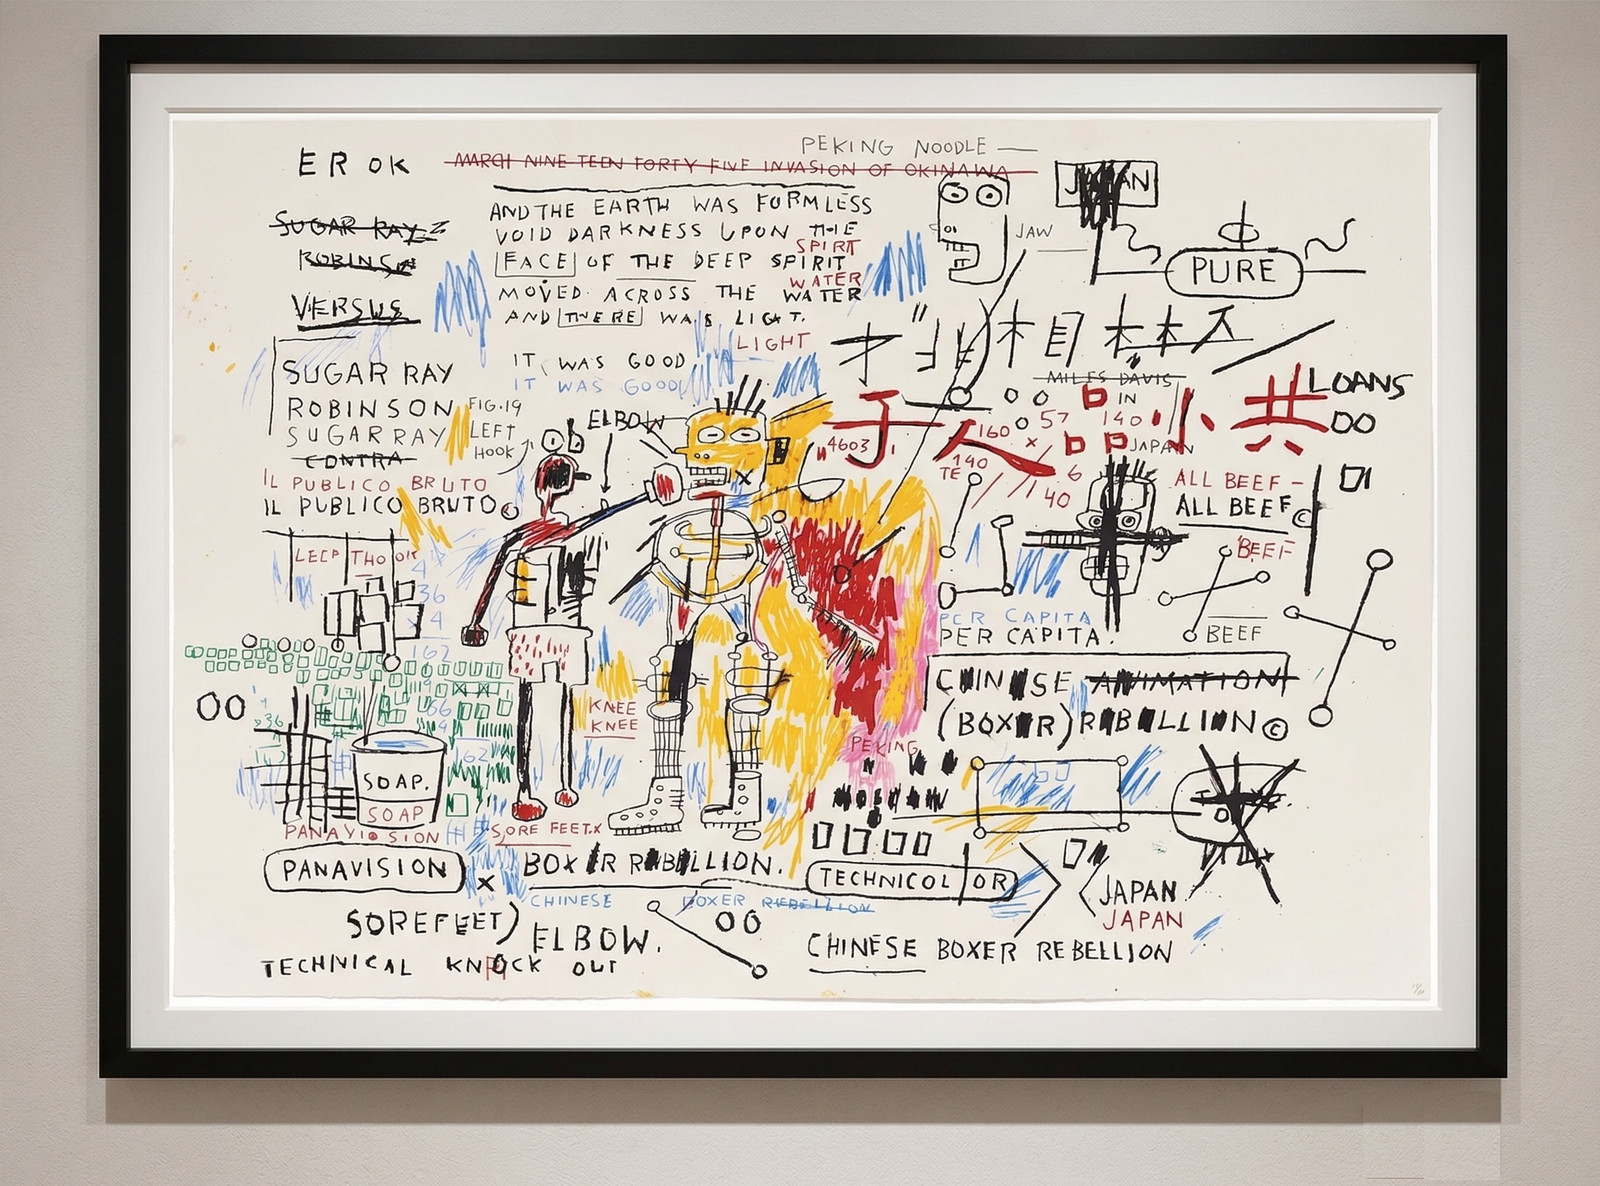 PEKING NOODLE
ER OK
MARCH NINE TEEN FORTY FIVE INVASION OF OKINAWA
JAPAN
SUGAR RAY
ROBINSON
VERSUS
AND THE EARTH WAS FORMLESS
VOID DARKNESS UPON THE
SPIRT
FACE OF THE DEEP SPIRIT
WATER
MOVED ACROSS THE WATER
AND THERE WAS LIGHT.
LIGHT
JAW
PURE
IT WAS GOOD
IT WAS GOOD
SUGAR RAY
ROBINSON
SUGAR RAY
CONTRA
FIG.19
LEFT
HOOK
ELBOW
IL PUBLICO BRUTO
IL PUBLICO BRUTO©
木目
MILES DAVIS
LOANS
于人品小共
IN
JAPAN
4603
57
140
160 x
140
TE
6
40
ALL BEEF -
ALL BEEF©
BEEF
BEEF
THO
4
36
x 4
162
66
4
36
62
PER CAPITA
PER CAPITA.
CHINESE ANIMATION
(BOXER) REBELLION©
KNEE
KNEE
PEKING
SOAP.
SOAP
PANAVISION
SORE FEET.x
PANAVISION
x
BOXER REBELLION.
TECHNICOLOR
CHINESE BOXER REBELLION
JAPAN
JAPAN
SOREFEET)
ELBOW.
CHINESE BOXER REBELLION
TECHNICAL KNOCK OUT